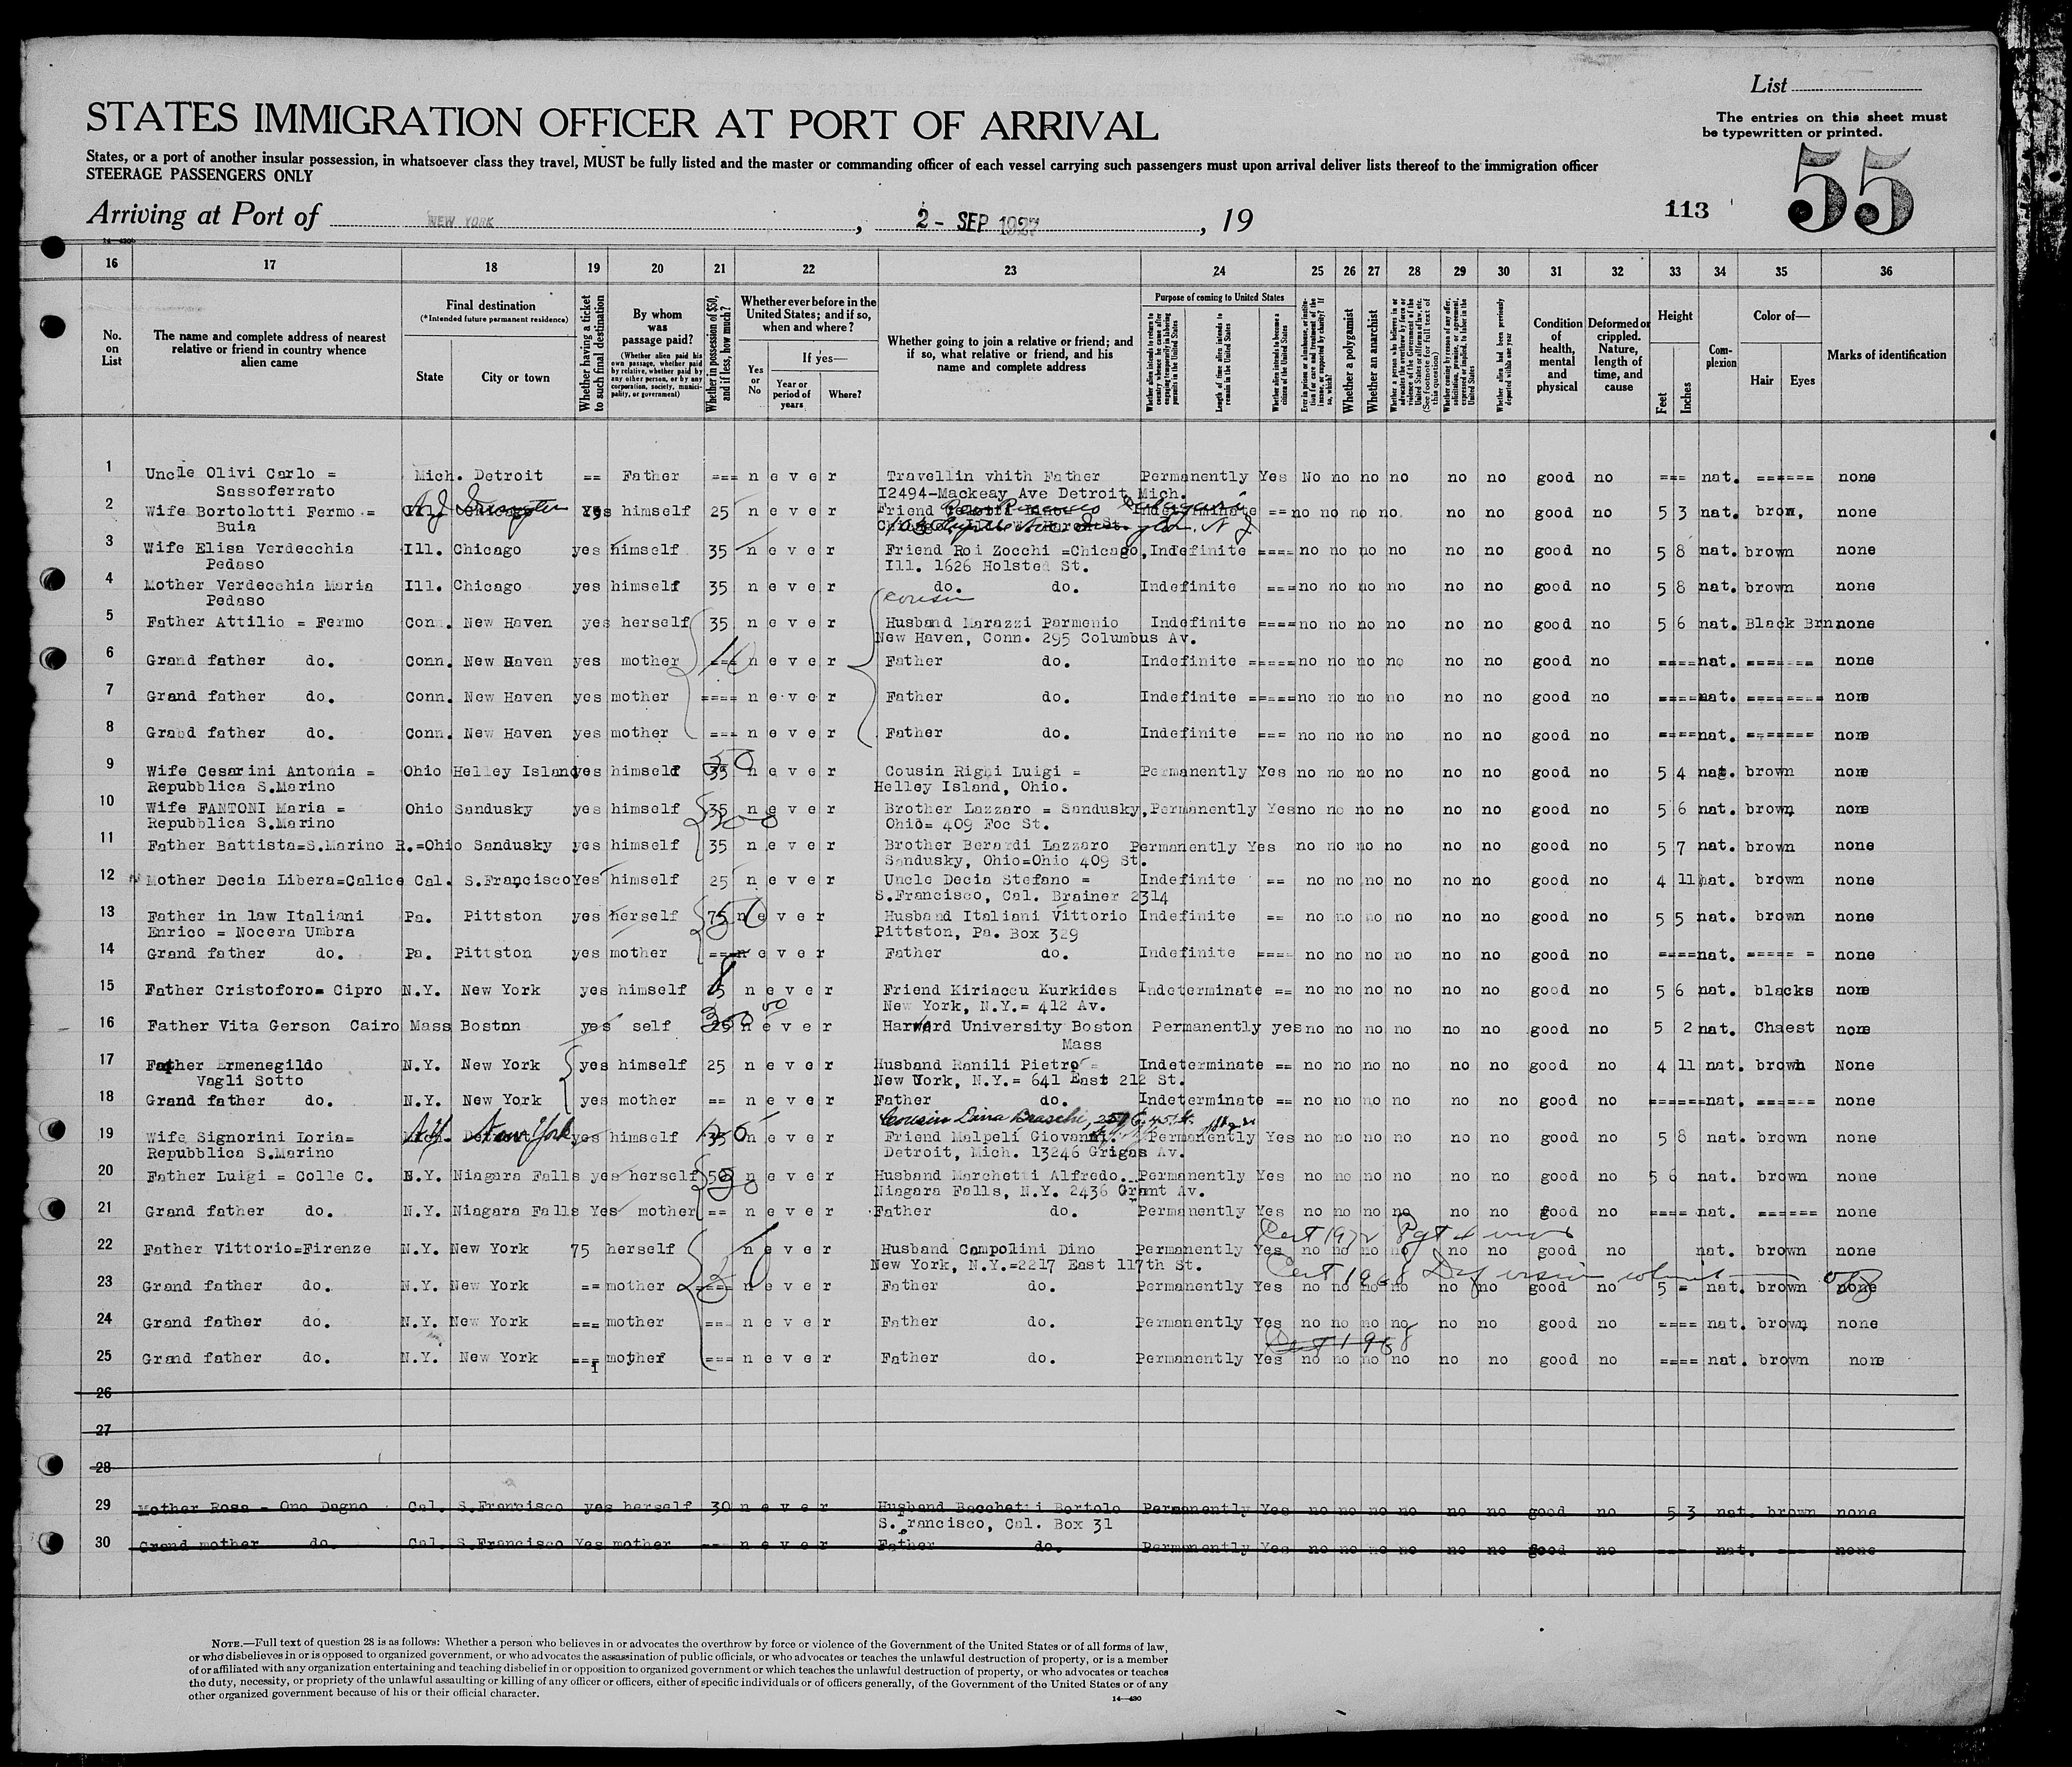 List
STATES IMMIGRATION OFFICER AT PORT OF ARRIVAL
The entries on this sheet must
be typewritten or printed.
States, or a port of another insular possession, in whatsoever class they travel, MUST be fully listed and the master or commanding officer of each vessel carrying such passengers must upon arrival deliver lists thereof to the immigration officer
STEERAGE PASSENGERS ONLY
55
113
Arriving at Port of NEW YORK , 2 - SEP 1927 , 19
16 17 18 19 20 21 22 23 24 25 26 27 28 29 30 31 32 33 34 35 36
No. on List
The name and complete address of nearest relative or friend in country whence alien came
Final destination
(*Intended future permanent residence)
State
City or town
Whether having a ticket to such final destination
By whom was passage paid?
(Whether alien paid his own passage, whether paid by relative, whether paid by any other person, or by any corporation, society, municipality, or government)
Whether in possession of $50, and if less, how much?
Whether ever before in the United States; and if so, when and where?
Yes or No
If yes—
Year or period of years
Where?
Whether going to join a relative or friend; and if so, what relative or friend, and his name and complete address
Purpose of coming to United States
Whether alien intends to return to country whence he came after engaging temporarily in laboring pursuits in the United States
Length of time alien intends to remain in the United States
Whether alien intends to become a citizen of the United States
Ever in prison or almshouse, or institution for care and treatment of the insane, or supported by charity? If so, which?
Whether a polygamist
Whether an anarchist
(See footnote for full text of this question)
Whether alien had been previously deported within one year
Condition of health, mental and physical
Deformed or crippled. Nature, length of time, and cause
Height
Feet
Inches
Complexion
Color of—
Hair
Eyes
Marks of identification
1 Uncle Olivi Carlo = Mich. Detroit == Father === never Travellin vhith Father Permanently Yes No no no no no no good no === nat. ====== none
Sassoferrato 12494-Mackeay Ave Detroit, Mich.
2 Wife Bortolotti Fermo = yes himself 25 never Friend == no no no no no no good no 5 3 nat. brow, none
Buia
3 Wife Elisa Verdecchia Ill. Chicago yes himself 35 never Friend Roi Zocchi =Chicago, Indefinite ==== no no no no no no good no 5 8 nat. brown none
Pedaso Ill. 1626 Holsted St.
4 Mother Verdecchia Maria Ill. Chicago yes himself 35 never do. do. Indefinite === no no no no no no good no 5 8 nat. brown none
Pedaso cousin
5 Father Attilio = Fermo Con. New Haven yes herself 35 never Husband Marazzi Parmenio Indefinite ==== no no no no no no good no 5 6 nat. Black Brn. none
New Haven, Conn. 295 Columbus Av.
6 Grand father do. Conn. New Haven yes mother === never Father do. Indefinite ===== no no no no no no good no ==== nat. ======= none
7 Grand father do. Conn. New Haven yes mother ==== never Father do. Indefinite ===== no no no no no no good no ==== nat. ======== none
8 Grand father do. Conn. New Haven yes mother === never Father do. Indefinite === no no no no no no good no ==== nat. ======= none
9 Wife Cesarini Antonia = Ohio Helley Island yes himself 35 50 never Cousin Righi Luigi = Permanently Yes no no no no no no good no 5 4 nat. brown none
Repubblica S.Marino Helley Island, Ohio.
10 Wife FANTONI Maria = Ohio Sandusky yes himself 35 never Brother Lazzaro = Sandusky, Permanently Yes no no no no no no good no 5 6 nat. brown none
Repubblica S.Marino Ohio= 409 Foc St.
11 Father Battista=S.Marino R.=Ohio Sandusky yes himself 35 never Brother Berardi Lazzaro Permanently Yes no no no no no no good no 5 7 nat. brown none
Sandusky, Ohio=Ohio 409 St.
12 Mother Decia Libera=Calice Cal. S.Francisco Yes himself 25 never Uncle Decia Stefano = Indefinite == no no no no no no good no 4 11 nat. brown none
S.Francisco, Cal. Brainer 2314
13 Father in law Italiani Pa. Pittston yes herself 75 never Husband Italiani Vittorio Indefinite == no no no no no no good no 5 5 nat. brown none
Enrico = Nocera Umbra Pittston, Pa. Box 329
14 Grand father do. Pa. Pittston yes mother === never Father do. Indefinite ==== no no no no no no good no ==== nat. ===== = none
15 Father Cristoforo= Cipro N.Y. New York yes himself never Friend Kiriaccu Kurkides Indeterminate == no no no no no no good no 5 6 nat. blacks none
New York, N.Y.= 412 Av.
16 Father Vita Gerson Cairo Mass Boston yes self 25 never Harward University Boston Permanently yes no no no no no no good no 5 2 nat. Chaest none
Mass
17 Father Ermenegildo N.Y. New York yes himself 25 never Husband Ranili Pietro = Indeterminate == no no no no no no good no 4 11 nat. brown None
Vagli Sotto New York, N.Y.= 641 East 212 St.
18 Grand father do. N.Y. New York yes mother == never Father do. Indeterminate == no no no no no no good no ====== nat. ====== none
Cousin Dina
19 Wife Signorini Loria= N.Y. New York yes himself 35 never Friend Malpeli Giovanni. Permanently Yes no no no no no no good no 5 8 nat. brown none
Repubblica S.Marino Detroit, Mich. 13246 Grigas Av.
20 Father Luigi = Colle C. N.Y. Niagara Falls yes herself 50 never Husband Marchetti Alfredo. Permanently Yes no no no no no no good no 5 6 nat. brown none
Niagara Falls, N.Y. 2436 Grant Av.
21 Grand father do. N.Y. Niagara Falls Yes mother == never Father do. Permanently Yes no no no no no no good no ==== nat. ====== none
22 Father Vittorio=Firenze N.Y. New York 75 herself never Husband Campolini Dino Permanently Yes no no no no no no good no nat. brown none
New York, N.Y.=2217 East 117th St.
23 Grand father do. N.Y. New York == mother never Father do. Permanently Yes no no no no no no good no 5 = nat. brown none
24 Grand father do. N.Y. New York === mother === never Father do. Permanently Yes no no no no no no good no ==== nat. brown none
25 Grand father do. N.Y. New York === mother === never Father do. Permanently Yes no no no no no no good no ==== nat. brown none
26
27
28
29 Mother Rosa - Ono Degno Cal. S.Francisco yes herself 30 never Husband Bacchetti Bortolo Permanently Yes no no no no no no good no 5 3 nat. brown none
S.Francisco, Cal. Box 31
30 Grand mother do. Cal. S.Francisco Yes mother == never Father do. Permanently Yes no no no no no no good no ---- nat. --- none
NOTE.—Full text of question 28 is as follows: Whether a person who believes in or advocates the overthrow by force or violence of the Government of the United States or of all forms of law,
or who disbelieves in or is opposed to organized government, or who advocates the assassination of public officials, or who advocates or teaches the unlawful destruction of property, or is a member
of or affiliated with any organization entertaining and teaching disbelief in or opposition to organized government or which teaches the unlawful destruction of property, or who advocates or teaches
the duty, necessity, or propriety of the unlawful assaulting or killing of any officer or officers, either of specific individuals or of officers generally, of the Government of the United States or of any
other organized government because of his or their official character.
14—430